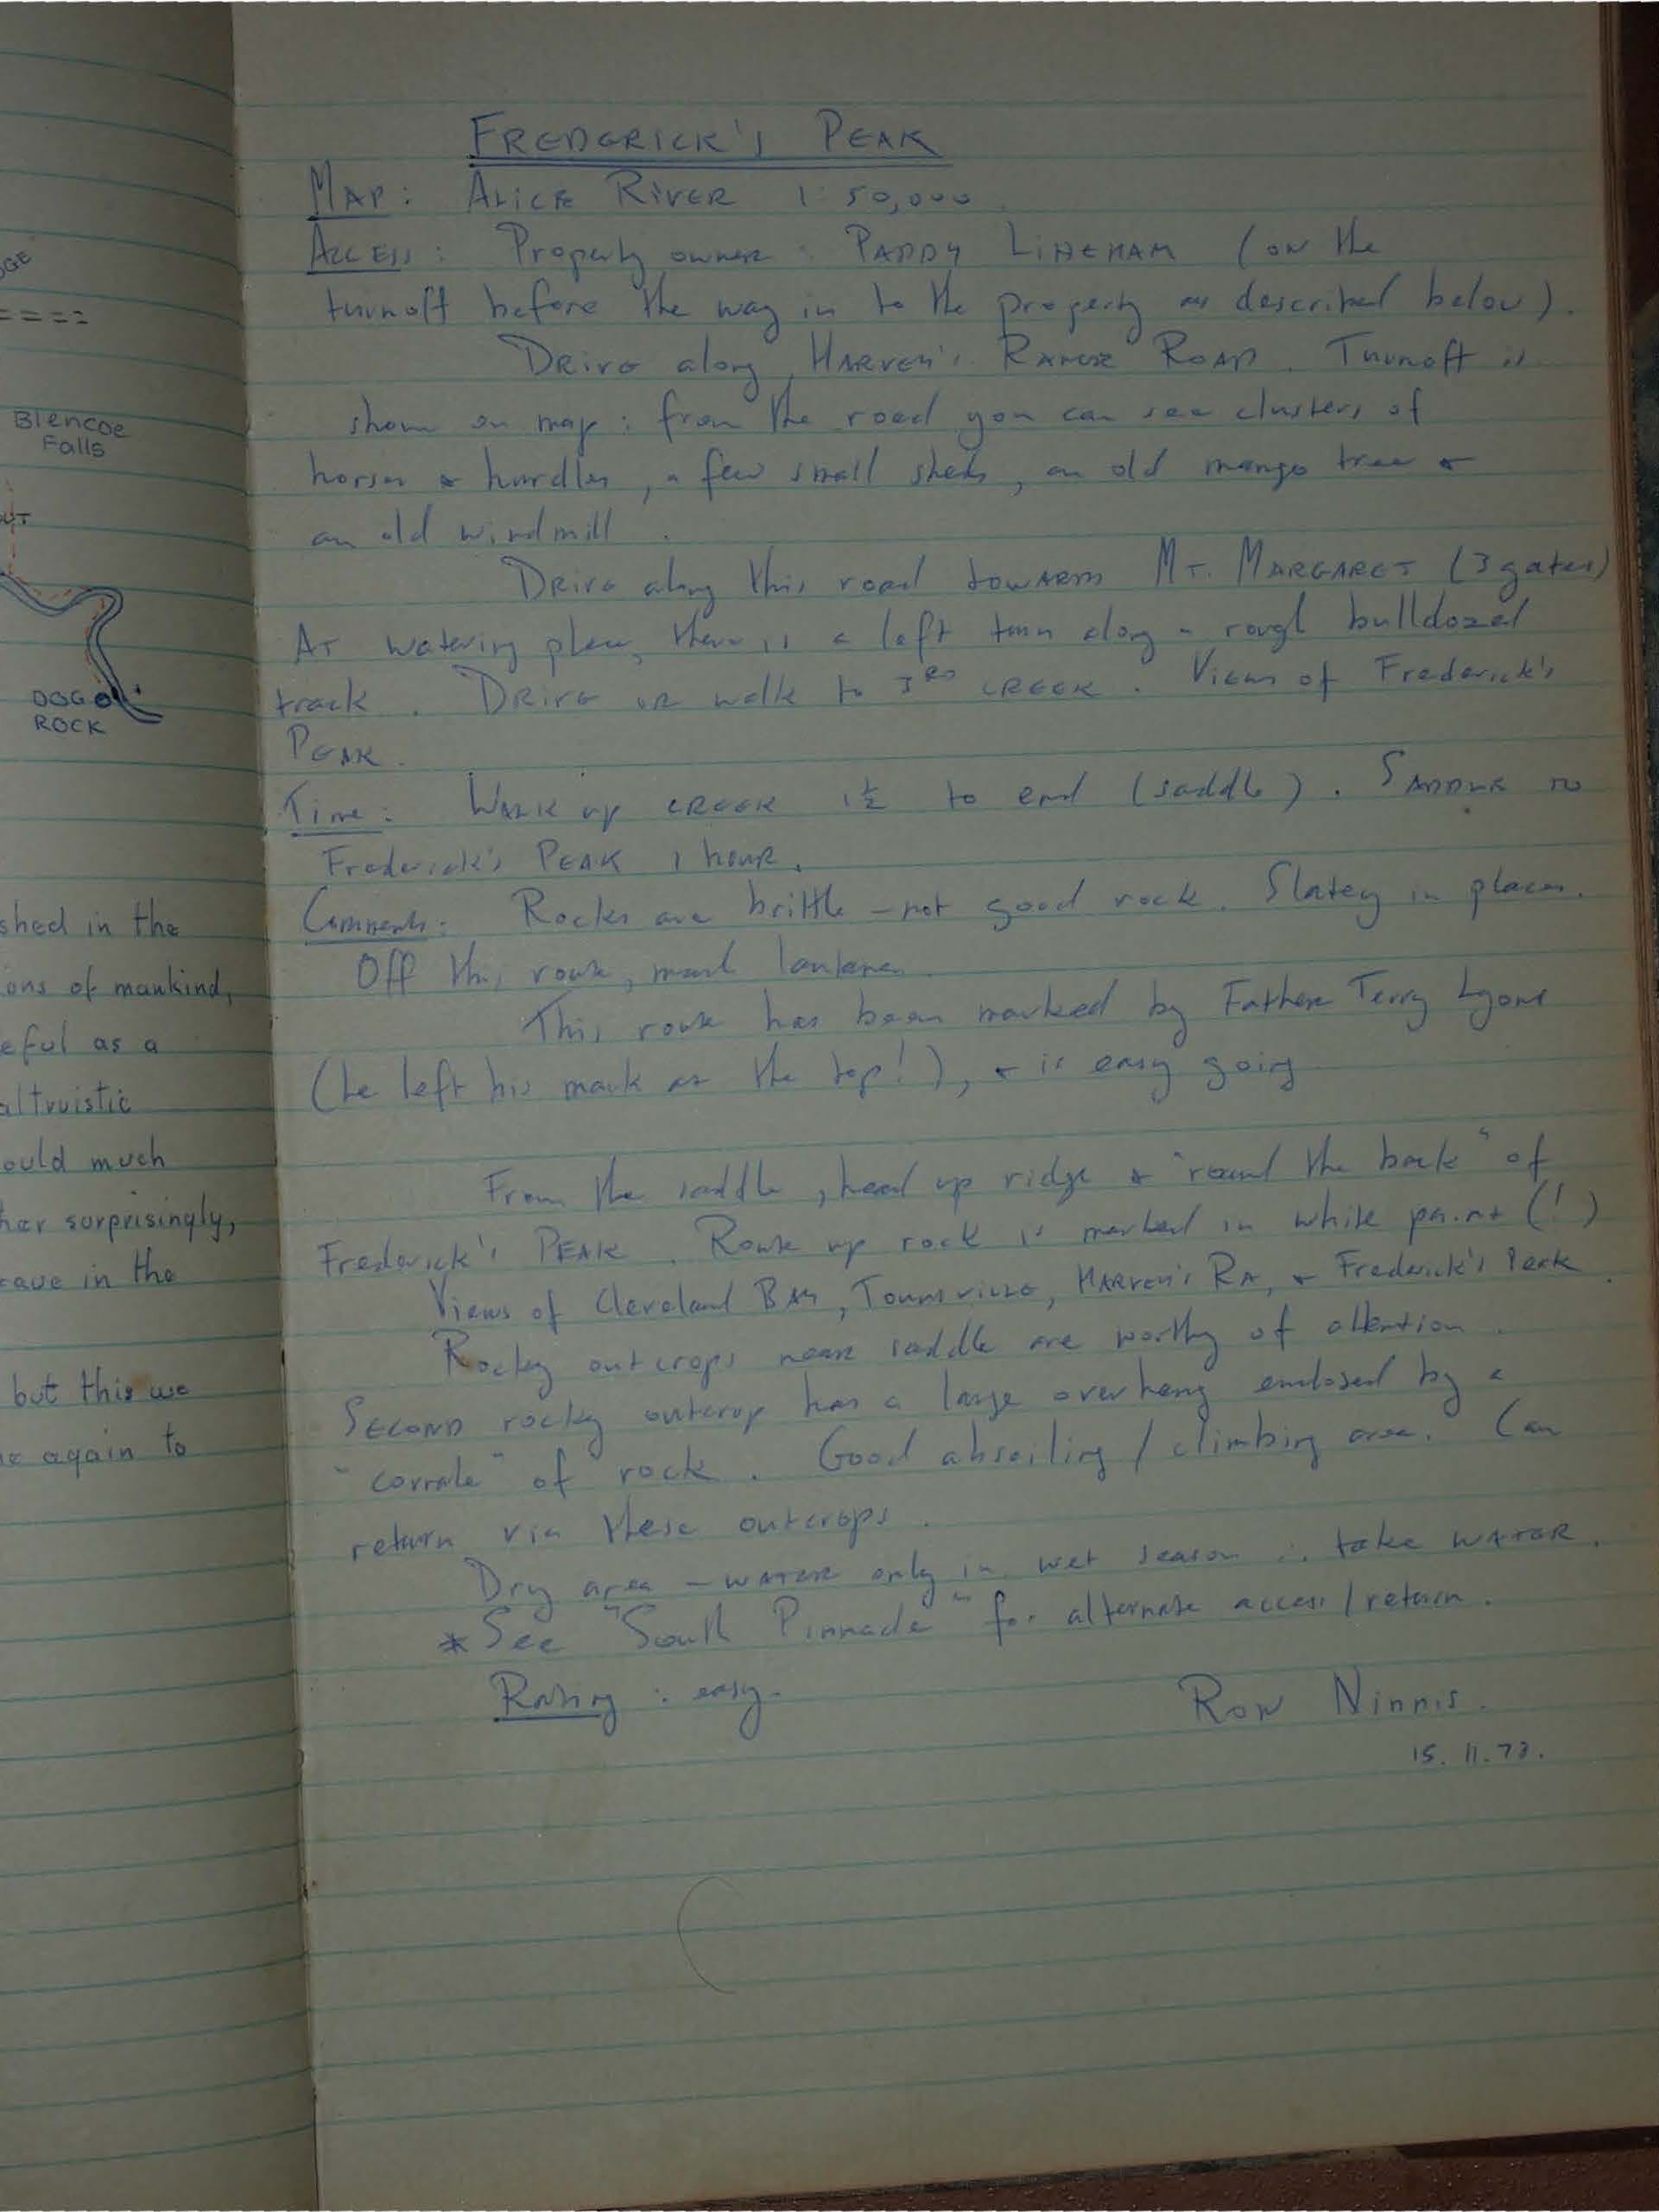 FREDERICK'S PEAK
MAP: ALICE RIVER 1:50,000
ACCESS: Property owner: PADDY LINEHAM (ON the
turnoff before the way in to the property as described below).
DRIVE along HARVEY'S RANGE ROAD. Turnoff is
shown on map: from the road you can see clusters of
horses & hurdles, a few small sheds, an old mango tree &
an old windmill.
DRIVE along this road towards MT. MARGARET (3 gates)
AT watering place, there is a left turn along a rough bulldozed
track. DRIVE OR walk to 3RD CREEK. Views of Frederick's
PEAK.
Time: WALK up CREEK 1½ to end (saddle). SADDLE TO
Frederick's PEAK 1 hour.
Comments: Rocks are brittle - not good rock. Slatey in places.
Off this route, much lantana.
This route has been marked by Father Terry Lyons
(he left his mark at the top!), & is easy going
From the saddle, head up ridge & "round the back" of
Frederick's PEAK. Route up rock is marked in white paint (!)
Views of Cleveland BAY, TOWNSVILLE, HARVEY'S RA, & Frederick's Peak.
Rocky outcrops near saddle are worthy of attention.
SECOND rocky outcrop has a large overhang enclosed by a
"corrale" of rock. Good abseiling / climbing area. Can
return via these outcrops.
Dry area - WATER only in wet season ∴ take WATER.
* See "South Pinnacle" for alternate access / return.
Rating: easy.
RON Ninnis.
15.11.73.
OGE
Blencoe
Falls
OUT
DOG
ROCK
shed in the
ons of mankind,
eful as a
altruistic
ould much
her surprisingly,
rave in the
but this we
e again to